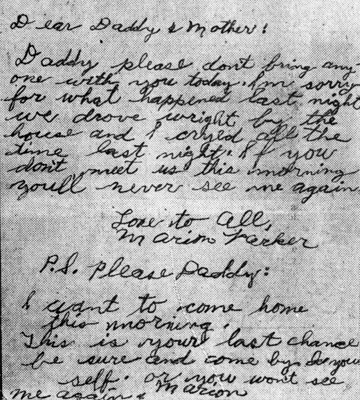 Dear Daddy & Mother:
Daddy please don't bring any-
one with you today. I'm sorry
for what happened last night
we drove wright by the
house and I cryed all the
time last night. If you
don't meet us this morning
you'll never see me again
Love to all,
Marion Parker
P.S. Please Daddy:
I want to come home
this morning.
This is your last chance
be sure and come by your
self. or you won't see
me again. Marion